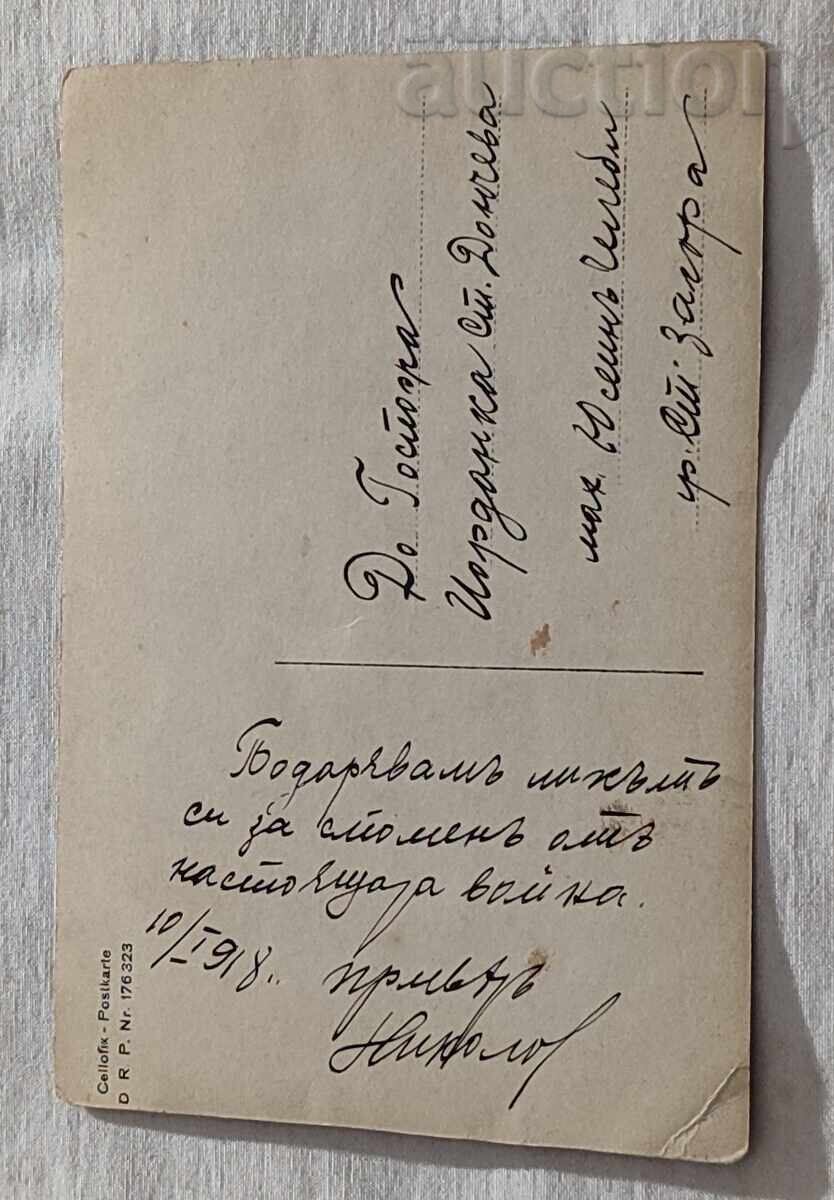 auction
Cellofix - Postkarte
D R P. Nr. 176323
Подарявамъ ликътъ
си за споменъ отъ
настоящата война.
10/I 918.. приветъ
Николов
До Госпожа
Иорданка Ст. Дончева
мах. Юсеинъ Челеби
гр. Ст. Загора